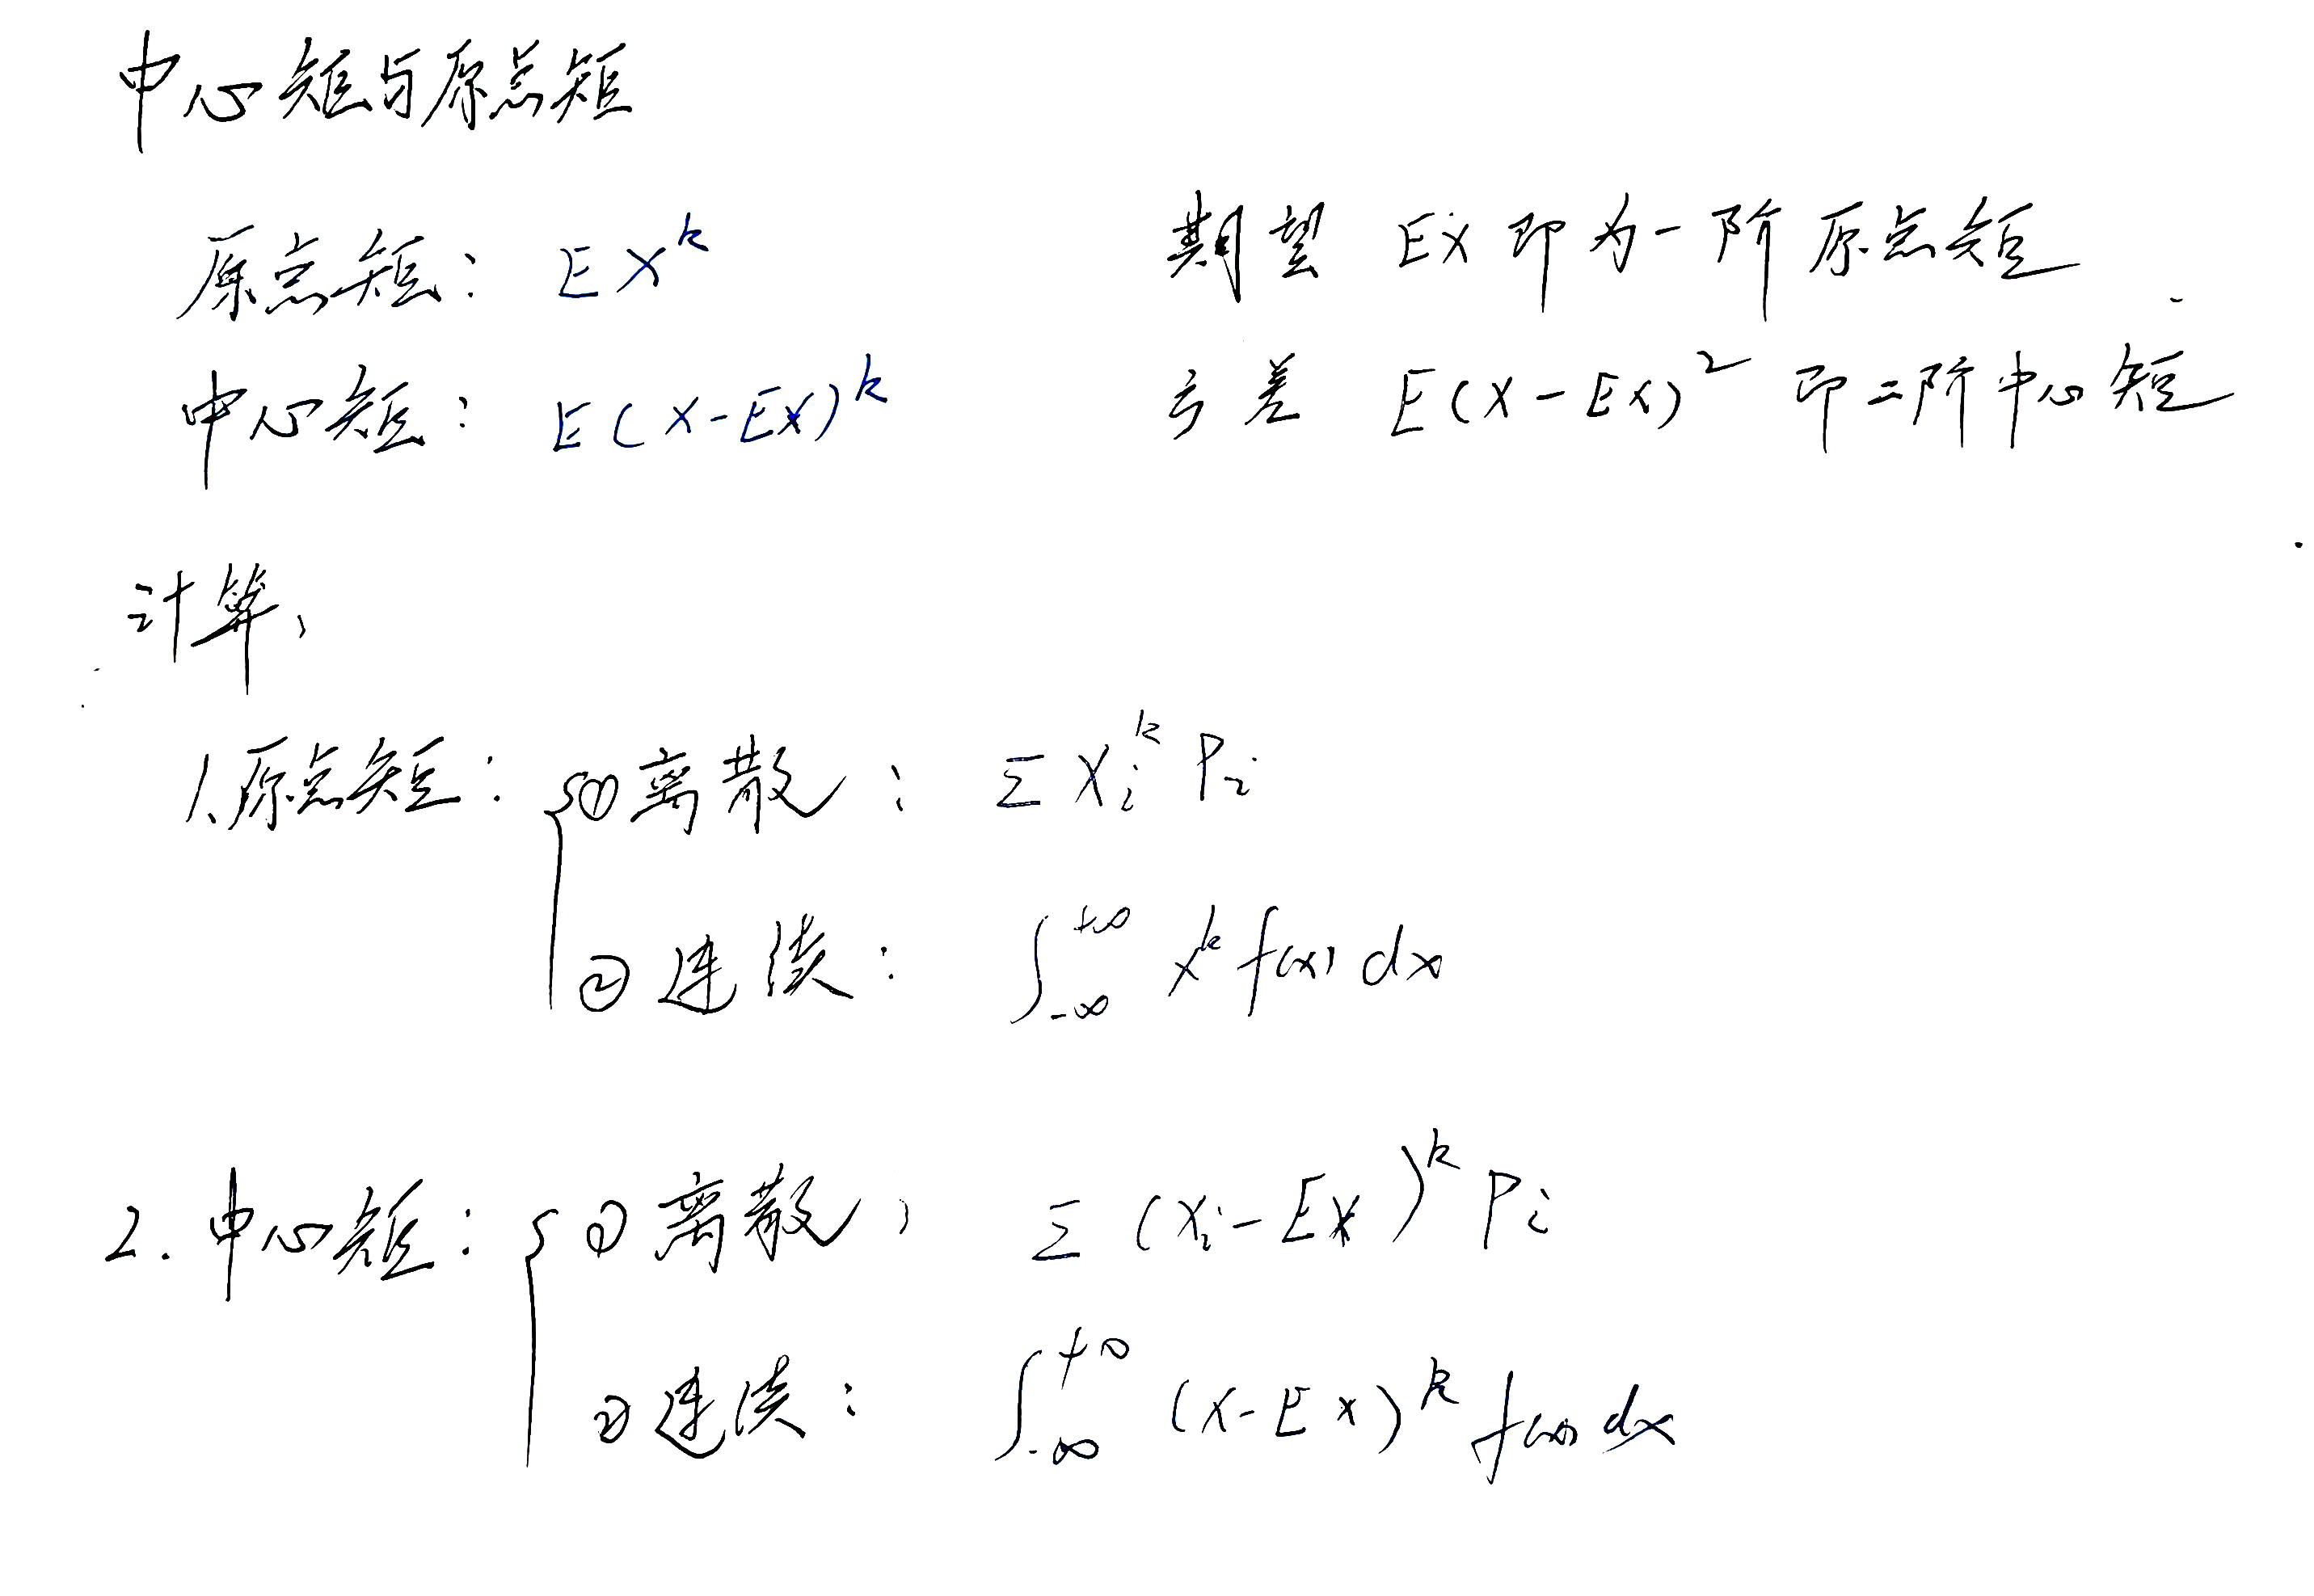 中心矩与原点矩
原点矩: EX^k 期望 EX即为一阶原点矩
中心矩: E(X-EX)^k 方差 E(X-EX)^2 即二阶中心矩
计算:
1.原点矩: { ①离散: Σ X_i^k P_i
②连续: ∫_{-∞}^{+∞} x^k f(x) dx
2.中心矩: { ①离散: Σ (X_i-EX)^k P_i
②连续: ∫_{-∞}^{+∞} (X-EX)^k f(x) dx